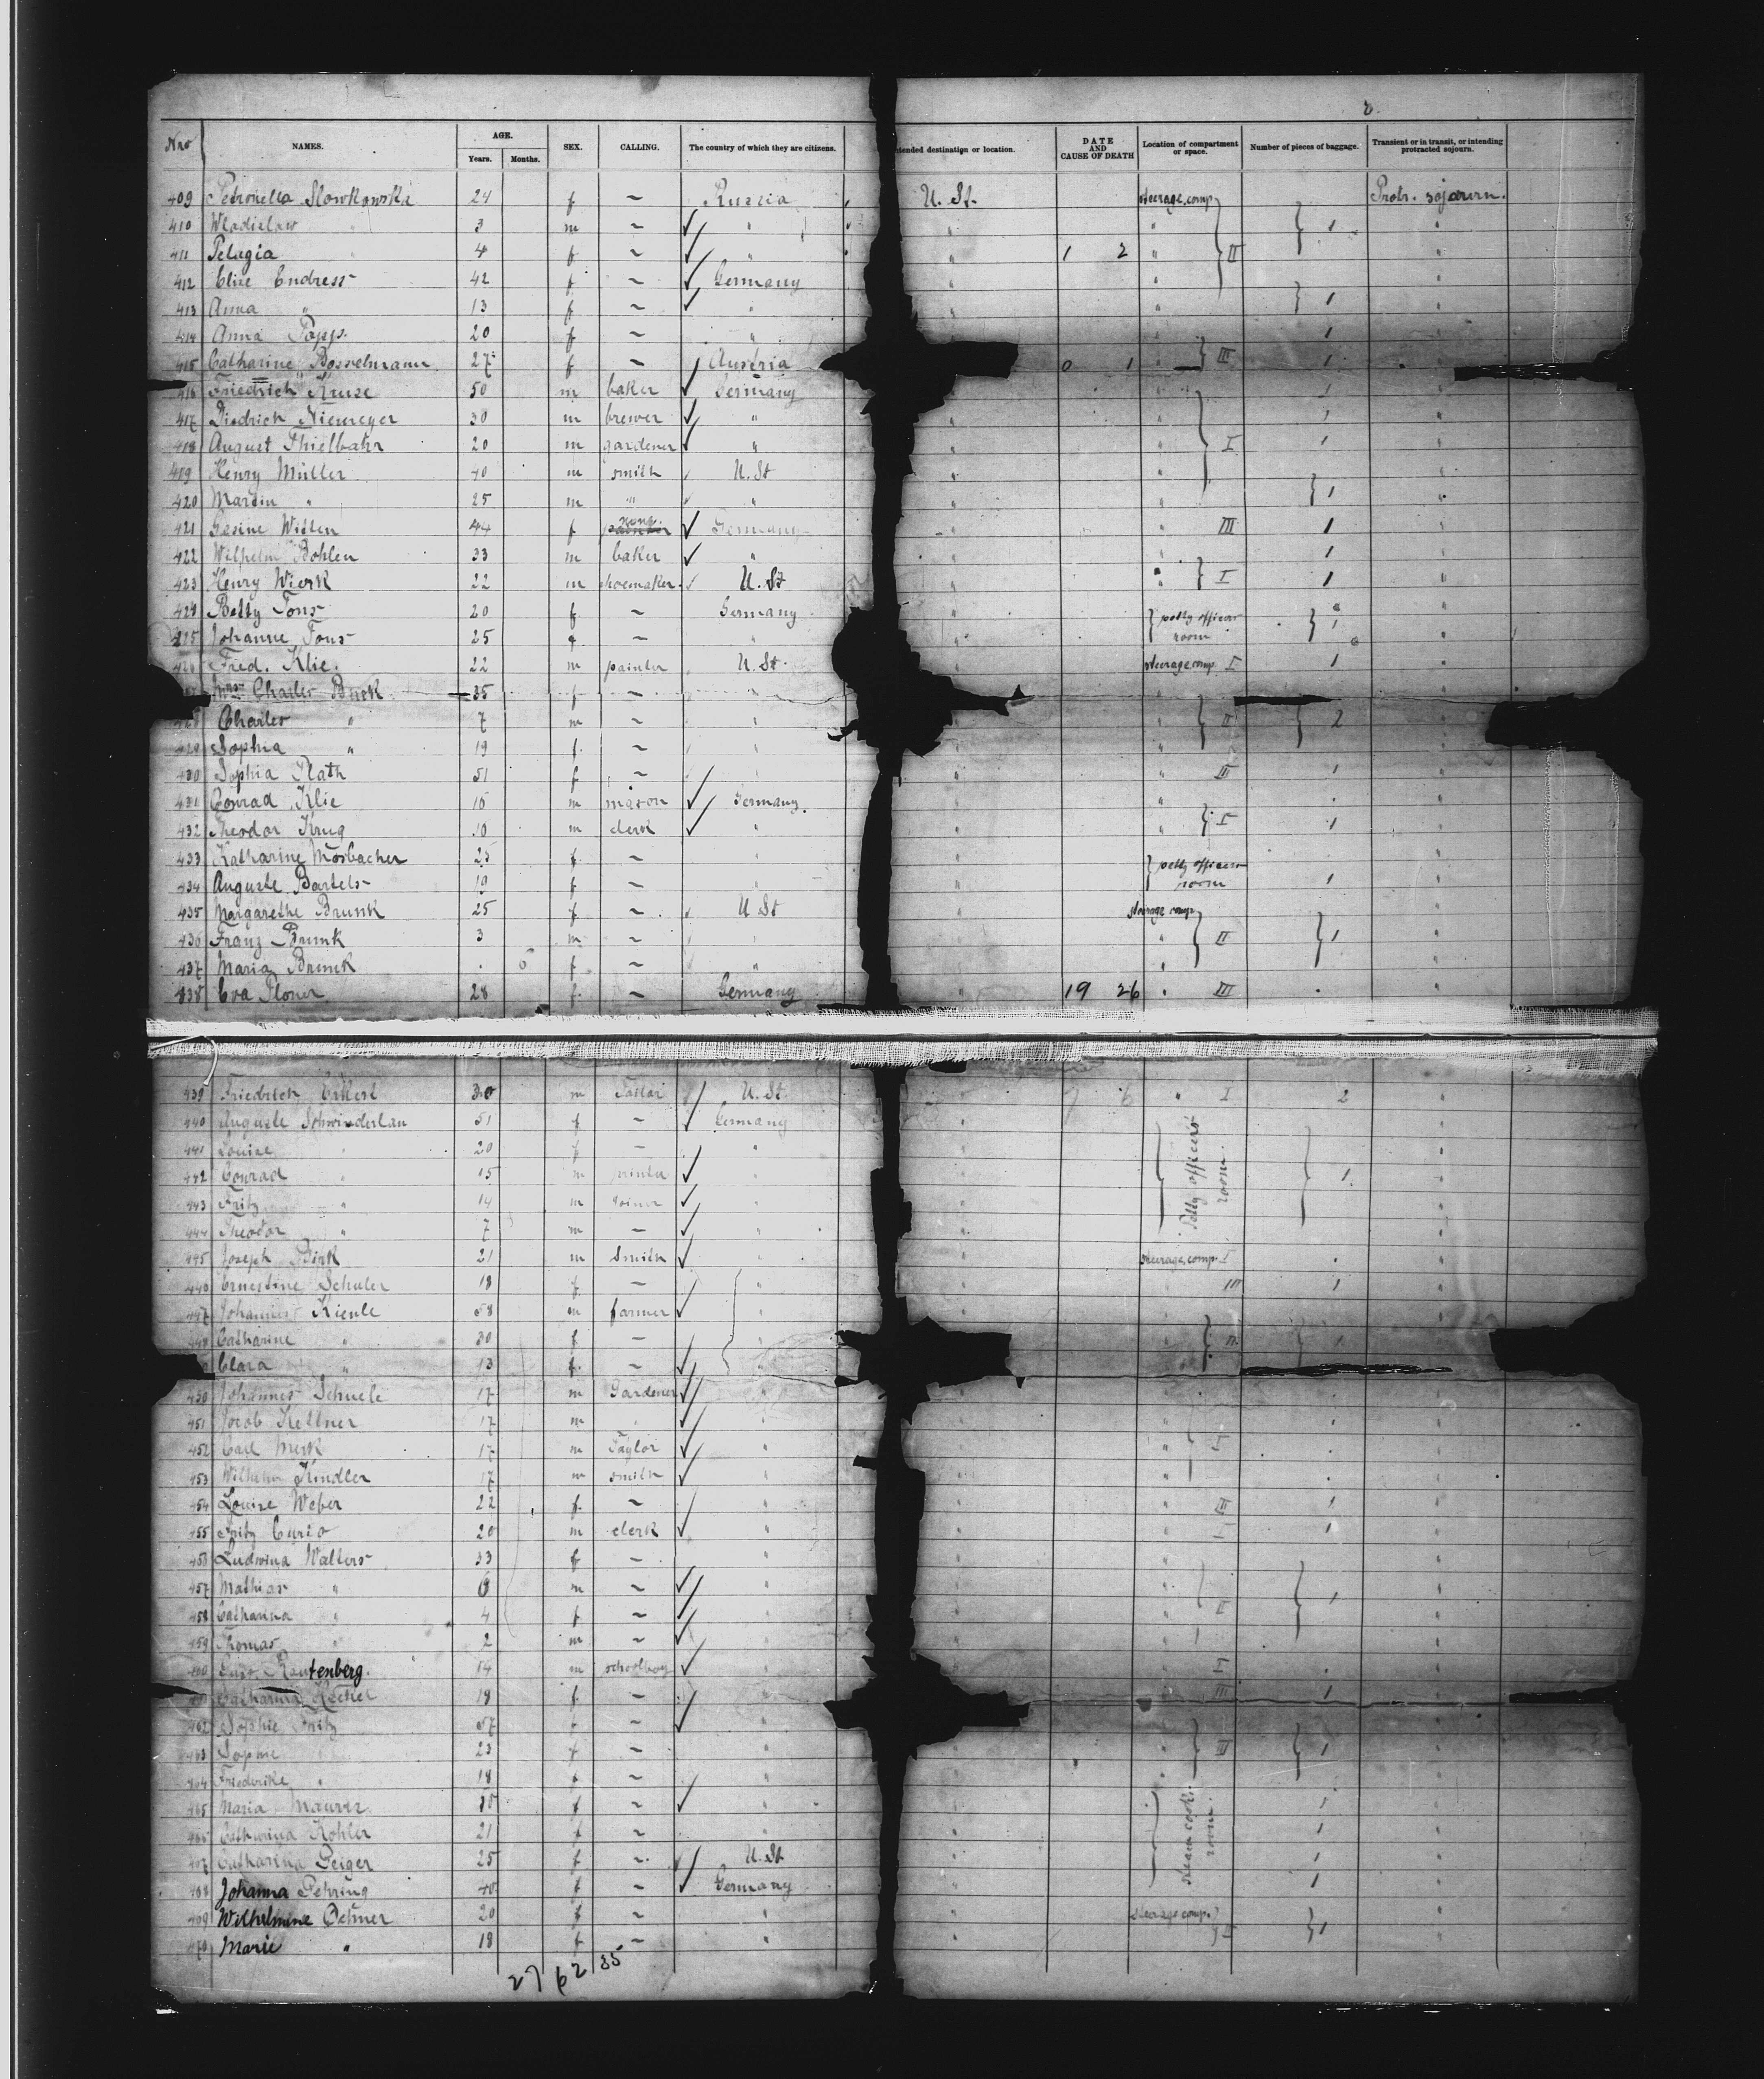 2.
Nro NAMES. AGE. Years. Months. SEX. CALLING. The country of which they are citizens. tended destination or location. DATE AND CAUSE OF DEATH Location of compartment or space. Number of pieces of baggage. Transient or in transit, or intending protracted sojourn.
409 Petronella Slowkowska 24 f ~ Russia U. St. steerage comp. Protr. sojourn.
410 Wladislaw " 3 m ~ " " " 1 "
411 Pelagia " 4 f ~ " " 1 2 " II "
412 Elise Endress 42 f ~ Germany " " "
413 Anna " 13 f ~ " " " 1 "
414 Anna Popp. 20 f ~ " " 1 "
415 Catharine Bosselmann 27 f ~ Austria 0 1 " III 1 "
416 Friedrich Kruse 50 m baker Germany " "
417 Diedrich Niemeyer 30 m brewer " " " 1 "
418 August Thielbahr 20 m gardener " " " I 1 "
419 Henry Müller 40 m smith U. St " " "
420 Martin " 25 m " " " " 1 "
421 Gesine Witten 44 f none Germany " " III 1 "
422 Wilhelm Bohlen 33 m baker " " " 1 "
423 Henry Wierk 22 m shoemaker U. St " " I 1 "
424 Betty Tons 20 f ~ Germany " petty officers room 1 "
425 Johanne Tons 25 f ~ " " "
426 Fred. Klie. 22 m painter U. St. " steerage comp. I 1 "
Mrs Charles Busk 35 f ~ "
428 Charles " 7 m ~ " " " II 2 "
429 Sophia " 19 f ~ " " " "
430 Sophia Plath 51 f ~ " " " III 1 "
431 Conrad Klie 16 m mason Germany. " " "
432 Theodor Krug 10 m clerk " " " I 1 "
433 Katharine Mosbacher 25 f ~ " " petty officers room "
434 Auguste Bartels 19 f ~ " " 1 "
435 Margarethe Brunk 25 f ~ U St " steerage comp "
436 Franz Brunk 3 m ~ " " " II 1 "
437 Maria Brunk 6 f ~ " " " "
438 Eva Ploner 28 f ~ Germany " 19 26 " III "
439 Friedrich 30 m Tailor U. St. " I 2 "
440 Auguste Schwinderlau 51 f ~ Germany " Petty officers room. "
441 Louise " 20 f ~ " " "
442 Conrad " 15 m " " 1. "
443 Fritz " 14 m Joiner " " "
444 Theodor " 7 m ~ " " "
445 Joseph Birk 21 m Smith " " steerage comp. I "
446 Ernestine Schuler 18 f ~ " " III 1 "
447 Johannes Kienle 58 m farmer " " "
448 Catharine " 30 f ~ " " II 1 "
Clara " 13 f. ~ "
450 Johannes Schuele 17 m Gardener " " " "
451 Jacob Kellner 17 m " " " " "
452 Carl Merk 17 m Taylor " " " I "
453 Wilhelm Kindler 17 m smith " " " "
454 Louise Weber 22 f. ~ " " " III 1 "
455 Fritz Curio 20 m clerk " " " I 1 "
456 Ludwina Walters 33 f ~ " " " "
457 Mathias " 6 m ~ " " " 1 "
458 Catharina " 4 f ~ " " " II "
459 Thomas " 2 m ~ " " " "
460 Rautenberg. 14 m schoolboy " " I "
Catharina 18 f ~ " III 1 "
462 Sophie Fritz 57 f ~ " " "
463 Sophie " 23 f ~ " " " III 1 "
464 Friederike " 18 f ~ " " " "
465 Maria Maurer 18 f ~ " " Steam cook. room. 1 "
466 Catharina Kohler 21 f ~ " " 1 "
467 Catharina Geiger 25 f ~ U. St. " 1 "
468 Johanna Gehring 40 f ~ Germany " 1 "
469 Wilhelmine Oehner 20 f ~ " " steerage comp. "
470 Marie " 18 f ~ " " I 1 "
27 62 35